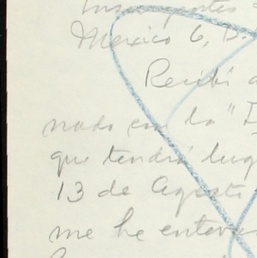 Insurgentes
Mexico 6, D.
Recibí
nado en la "I
que tendrá lug
13 de Agosto
me he entera